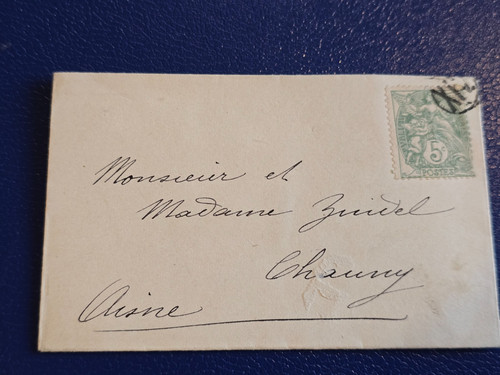 5c
POSTES
Monsieur et
Madame Zindel
Chauny
Aisne